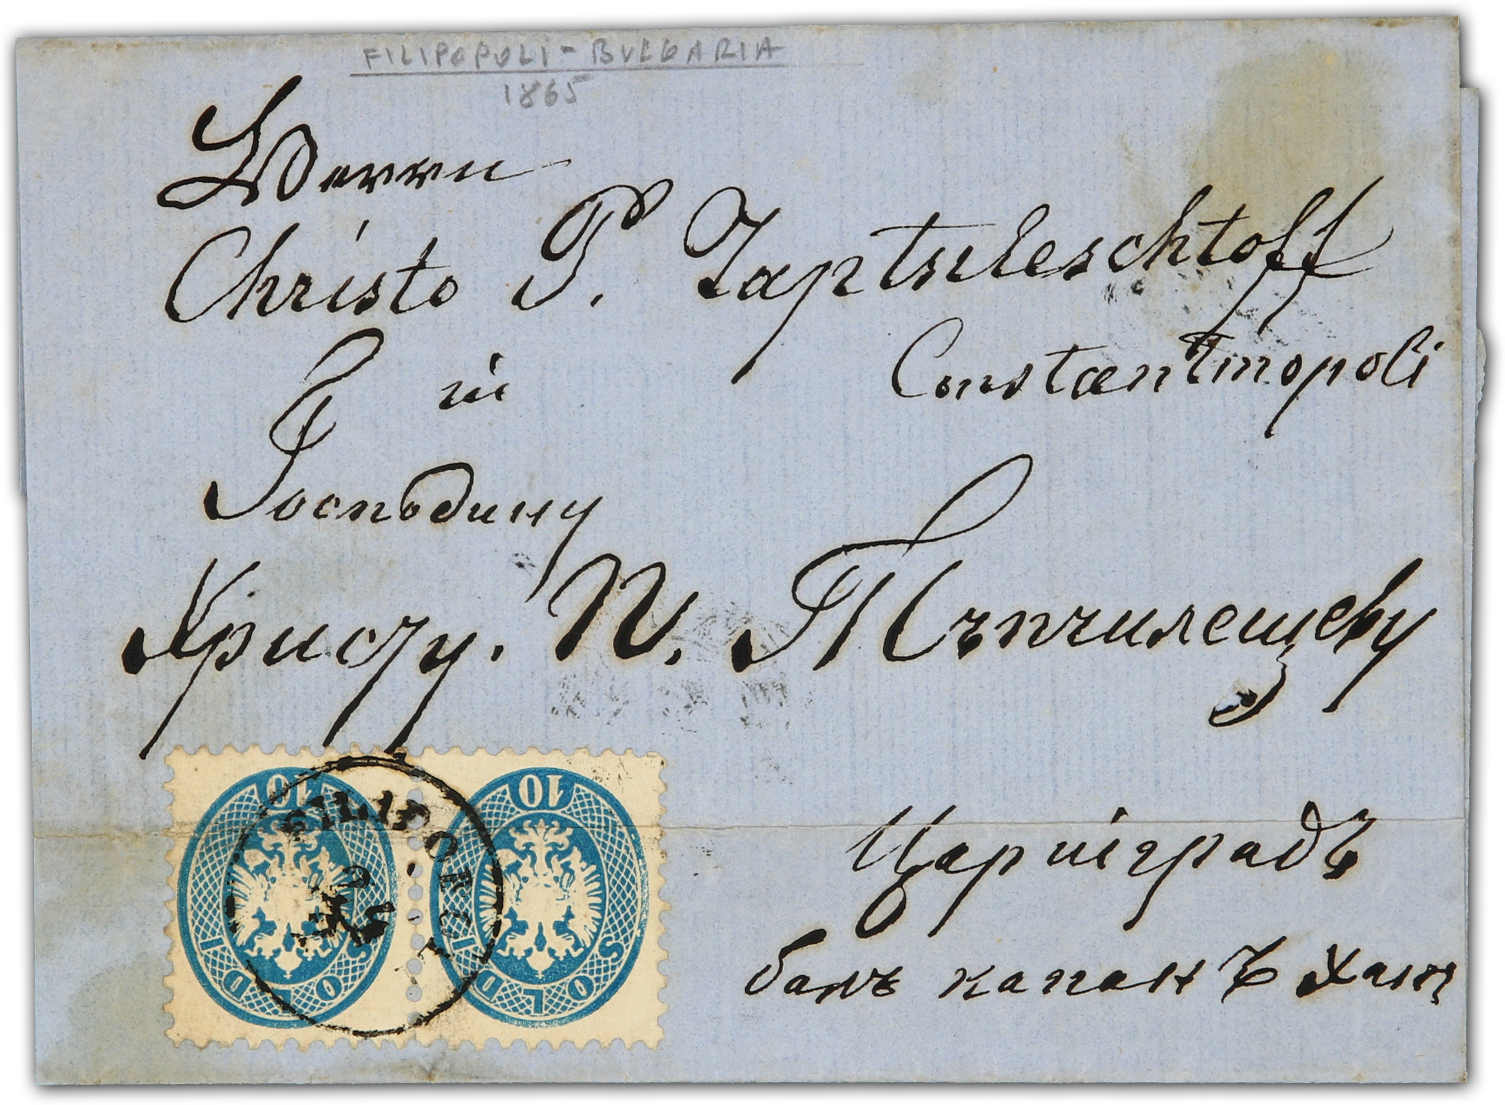 FILIPOPOLI - BULGARIA
1865
Herrn
Christo P. Taptscileschtoff
in Constantinopoli
Господину
Христу. П. Тъпчилещову
Цариград
балъ капан Ъ Хань
10 10
FILIPOPOLI
SOLDI SOLDI